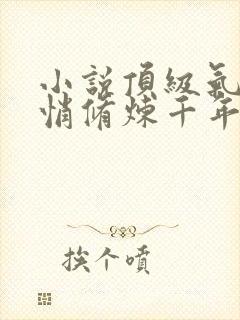 小說頂級氣
悄脩煉千年
挨个噴